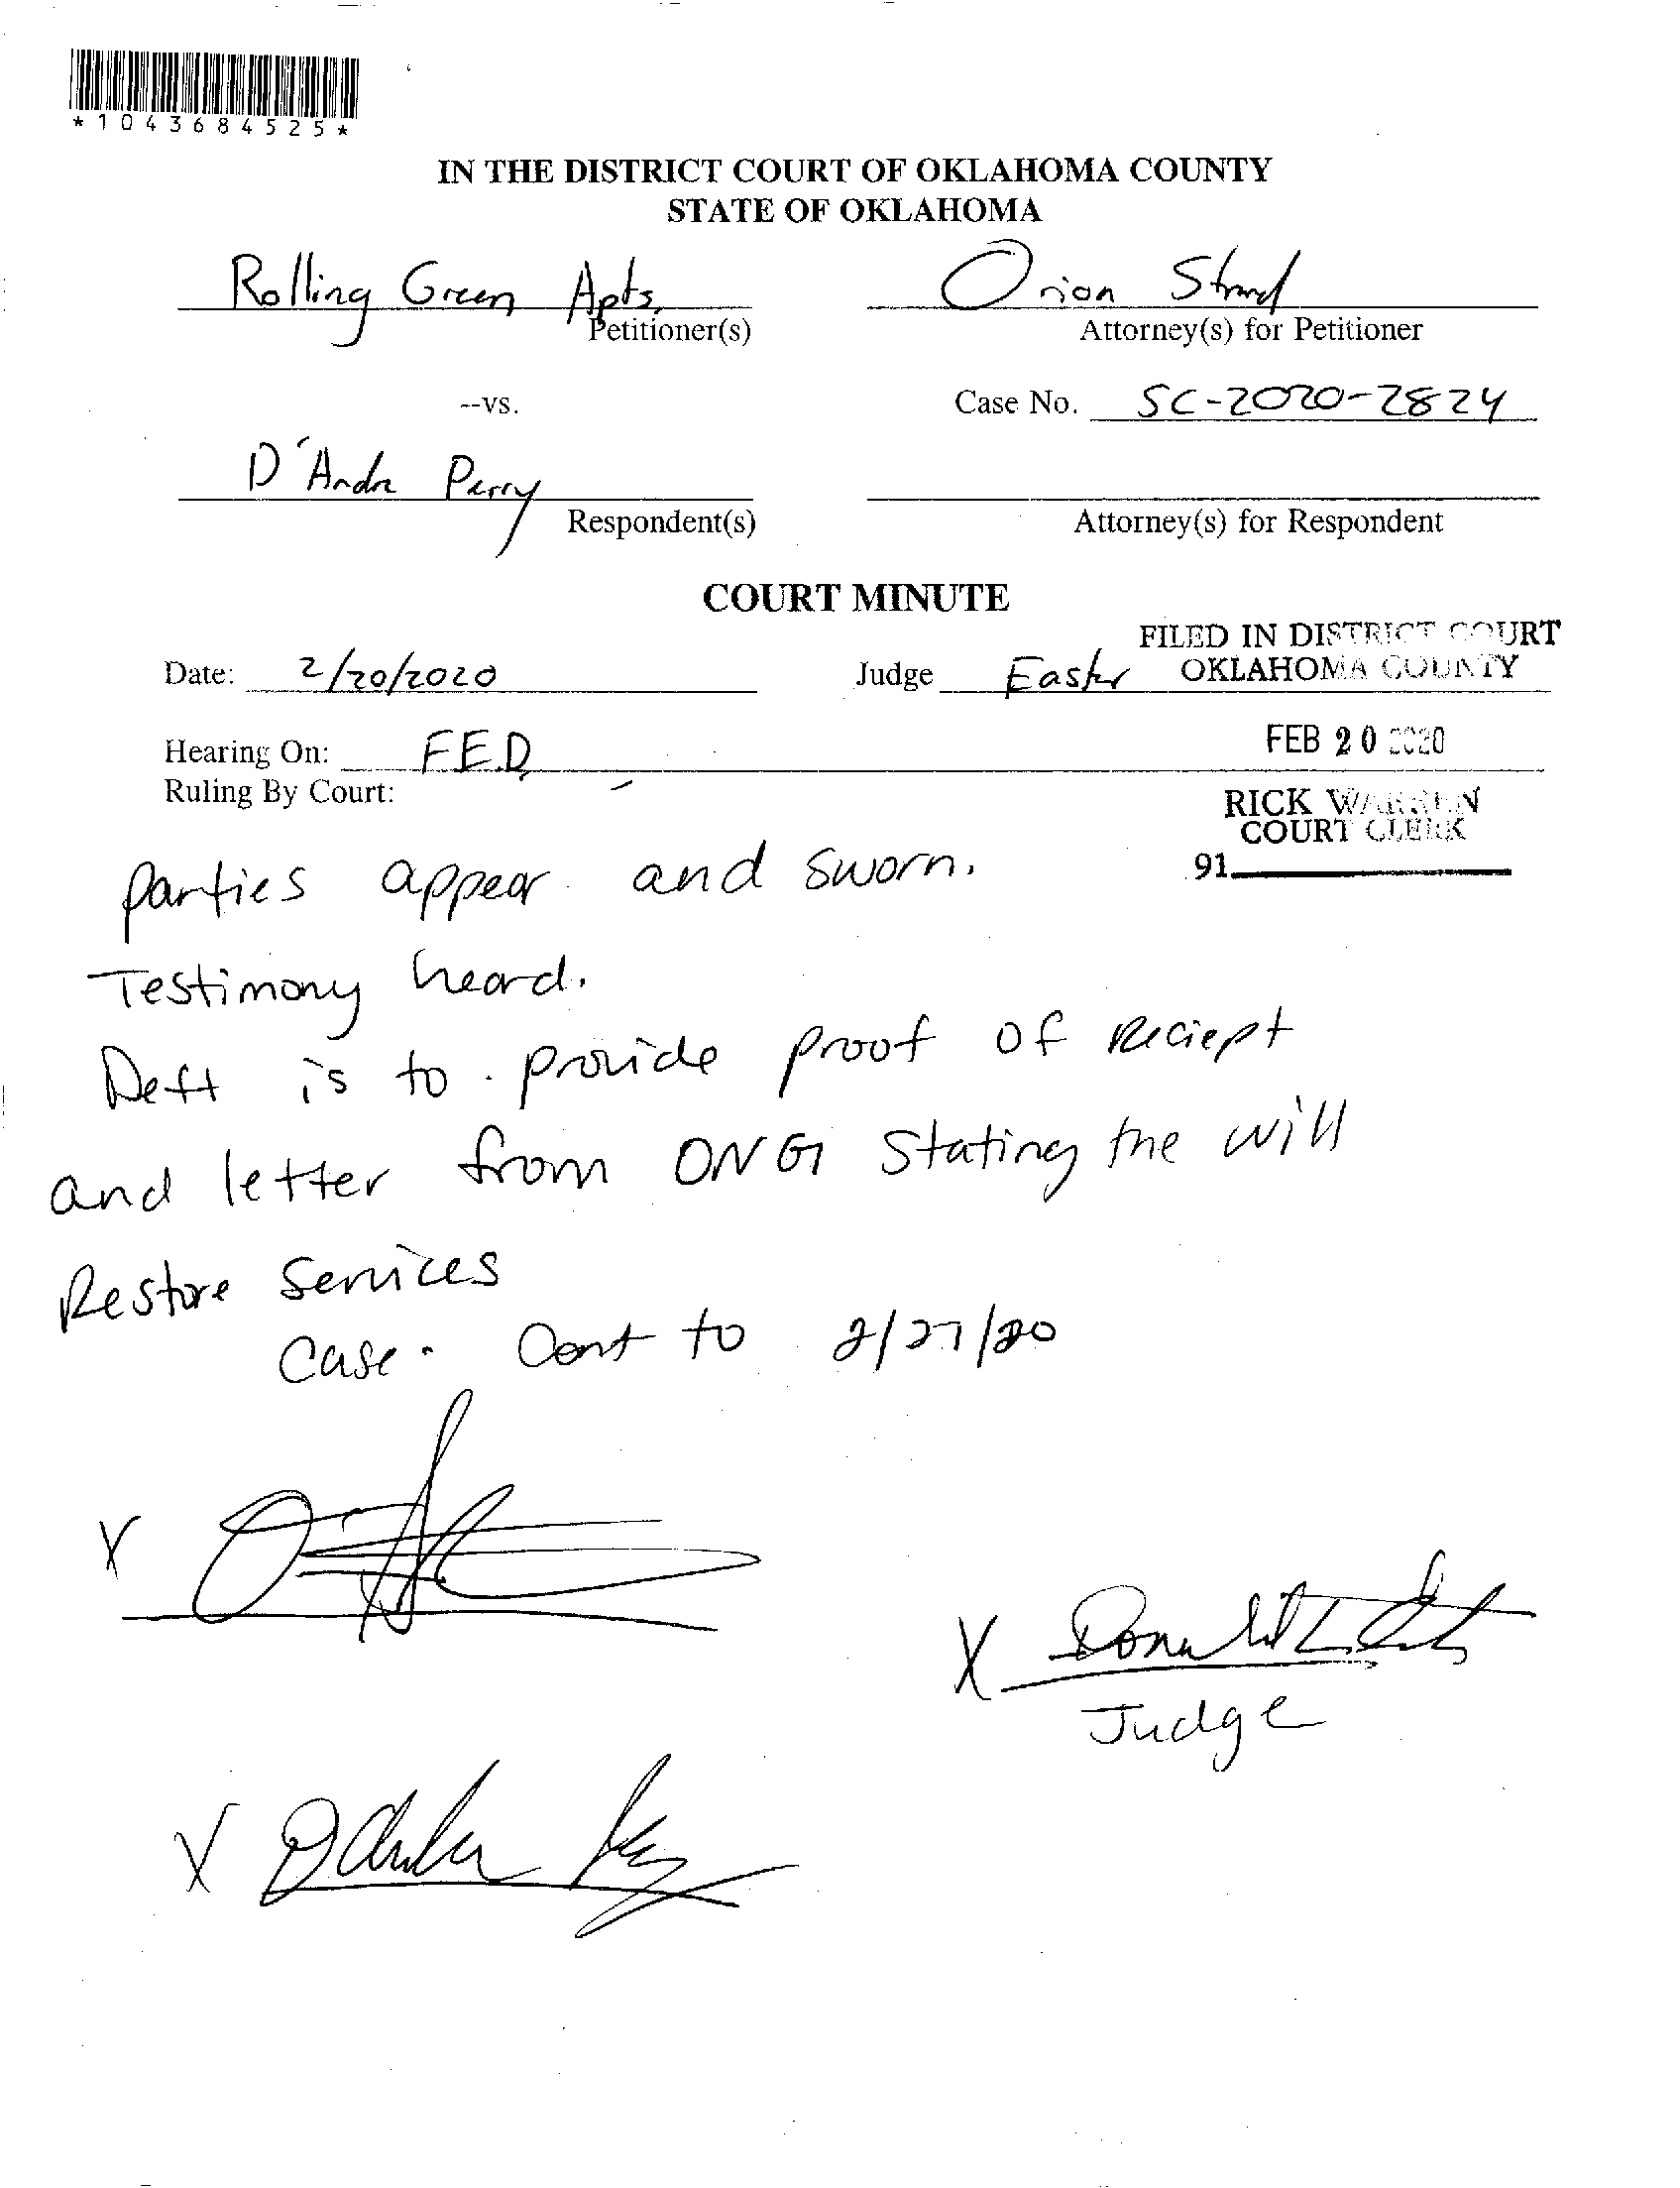 *1043684525*
IN THE DISTRICT COURT OF OKLAHOMA COUNTY
STATE OF OKLAHOMA
Rolling Green Apts,
Petitioner(s)
Orion Strand
Attorney(s) for Petitioner
--vs.
Case No. SC-2020-2824
D'Andre Perry
Respondent(s)
Attorney(s) for Respondent
COURT MINUTE
FILED IN DISTRICT COURT
OKLAHOMA COUNTY
Date: 2/20/2020
Judge Easter
FEB 20 2020
Hearing On: FED
Ruling By Court:
RICK WARREN
COURT CLERK
91
parties appear and sworn.
Testimony heard.
Deft is to provide proof of reciept
and letter from ONG stating the will
Restore Services
Case Cont to 2/27/20
X
X Donald L Easter
Judge
X D'Andre Perry